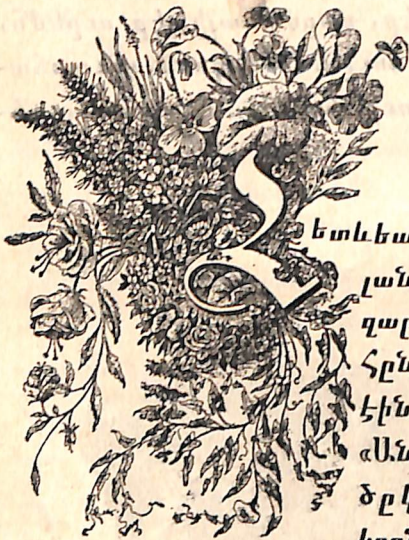 Հետևեա
լան
ղալ
Հըն
էին
«Ան
ծըկ